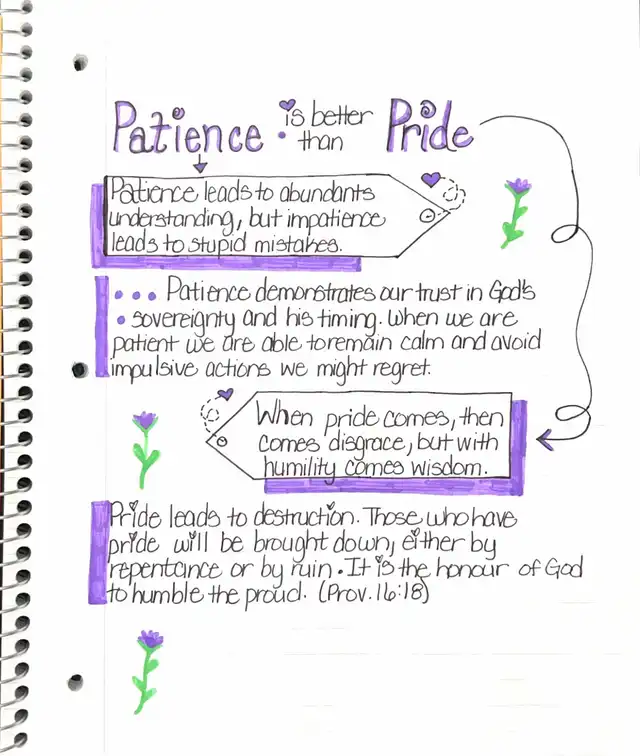 Patience is better than Pride
Patience leads to abundants
understanding, but impatience
leads to stupid mistakes.
... Patience demonstrates our trust in God's
• sovereignty and his timing. When we are
patient we are able to remain calm and avoid
impulsive actions we might regret.
When pride comes, then
comes disgrace, but with
humility comes wisdom.
Pride leads to destruction. Those who have
pride will be brought down, either by
repentance or by ruin. It is the honour of God
to humble the proud. (Prov. 16:18)